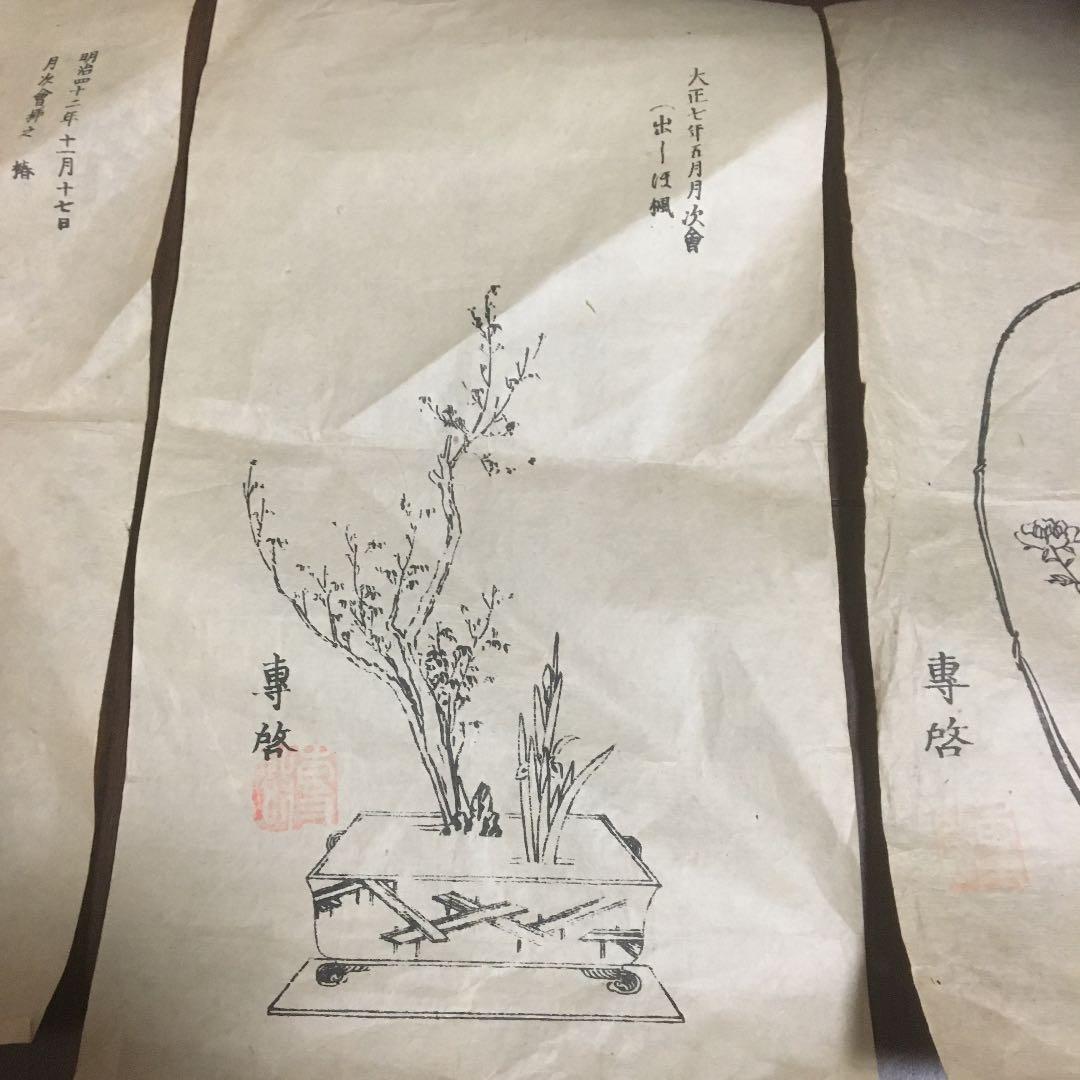 大正七年五月月次會
(出しほ楓
專啓
明治四十二年十一月十七日
月次會挿之
椿
專啓